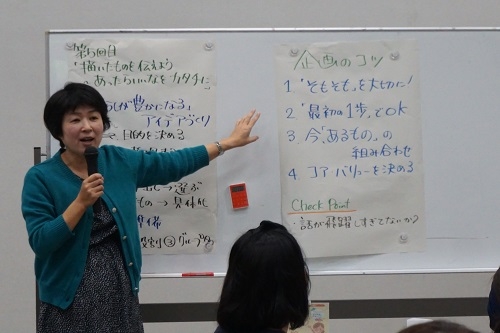 第5回目
「描いたものを伝えよう
あったらいいなをカタチに」
が豊かになる」
アイデアづくり
目的を決める
選ぶ
もの → 具体化
③ グループ
企画のコツ
1 「そもそも」を大切に!
2 「最初の1歩」でOK
3 今「あるもの」の
組み合わせ
4 コア・バリューを決める
Check Point
・話が飛躍しすぎてないか?